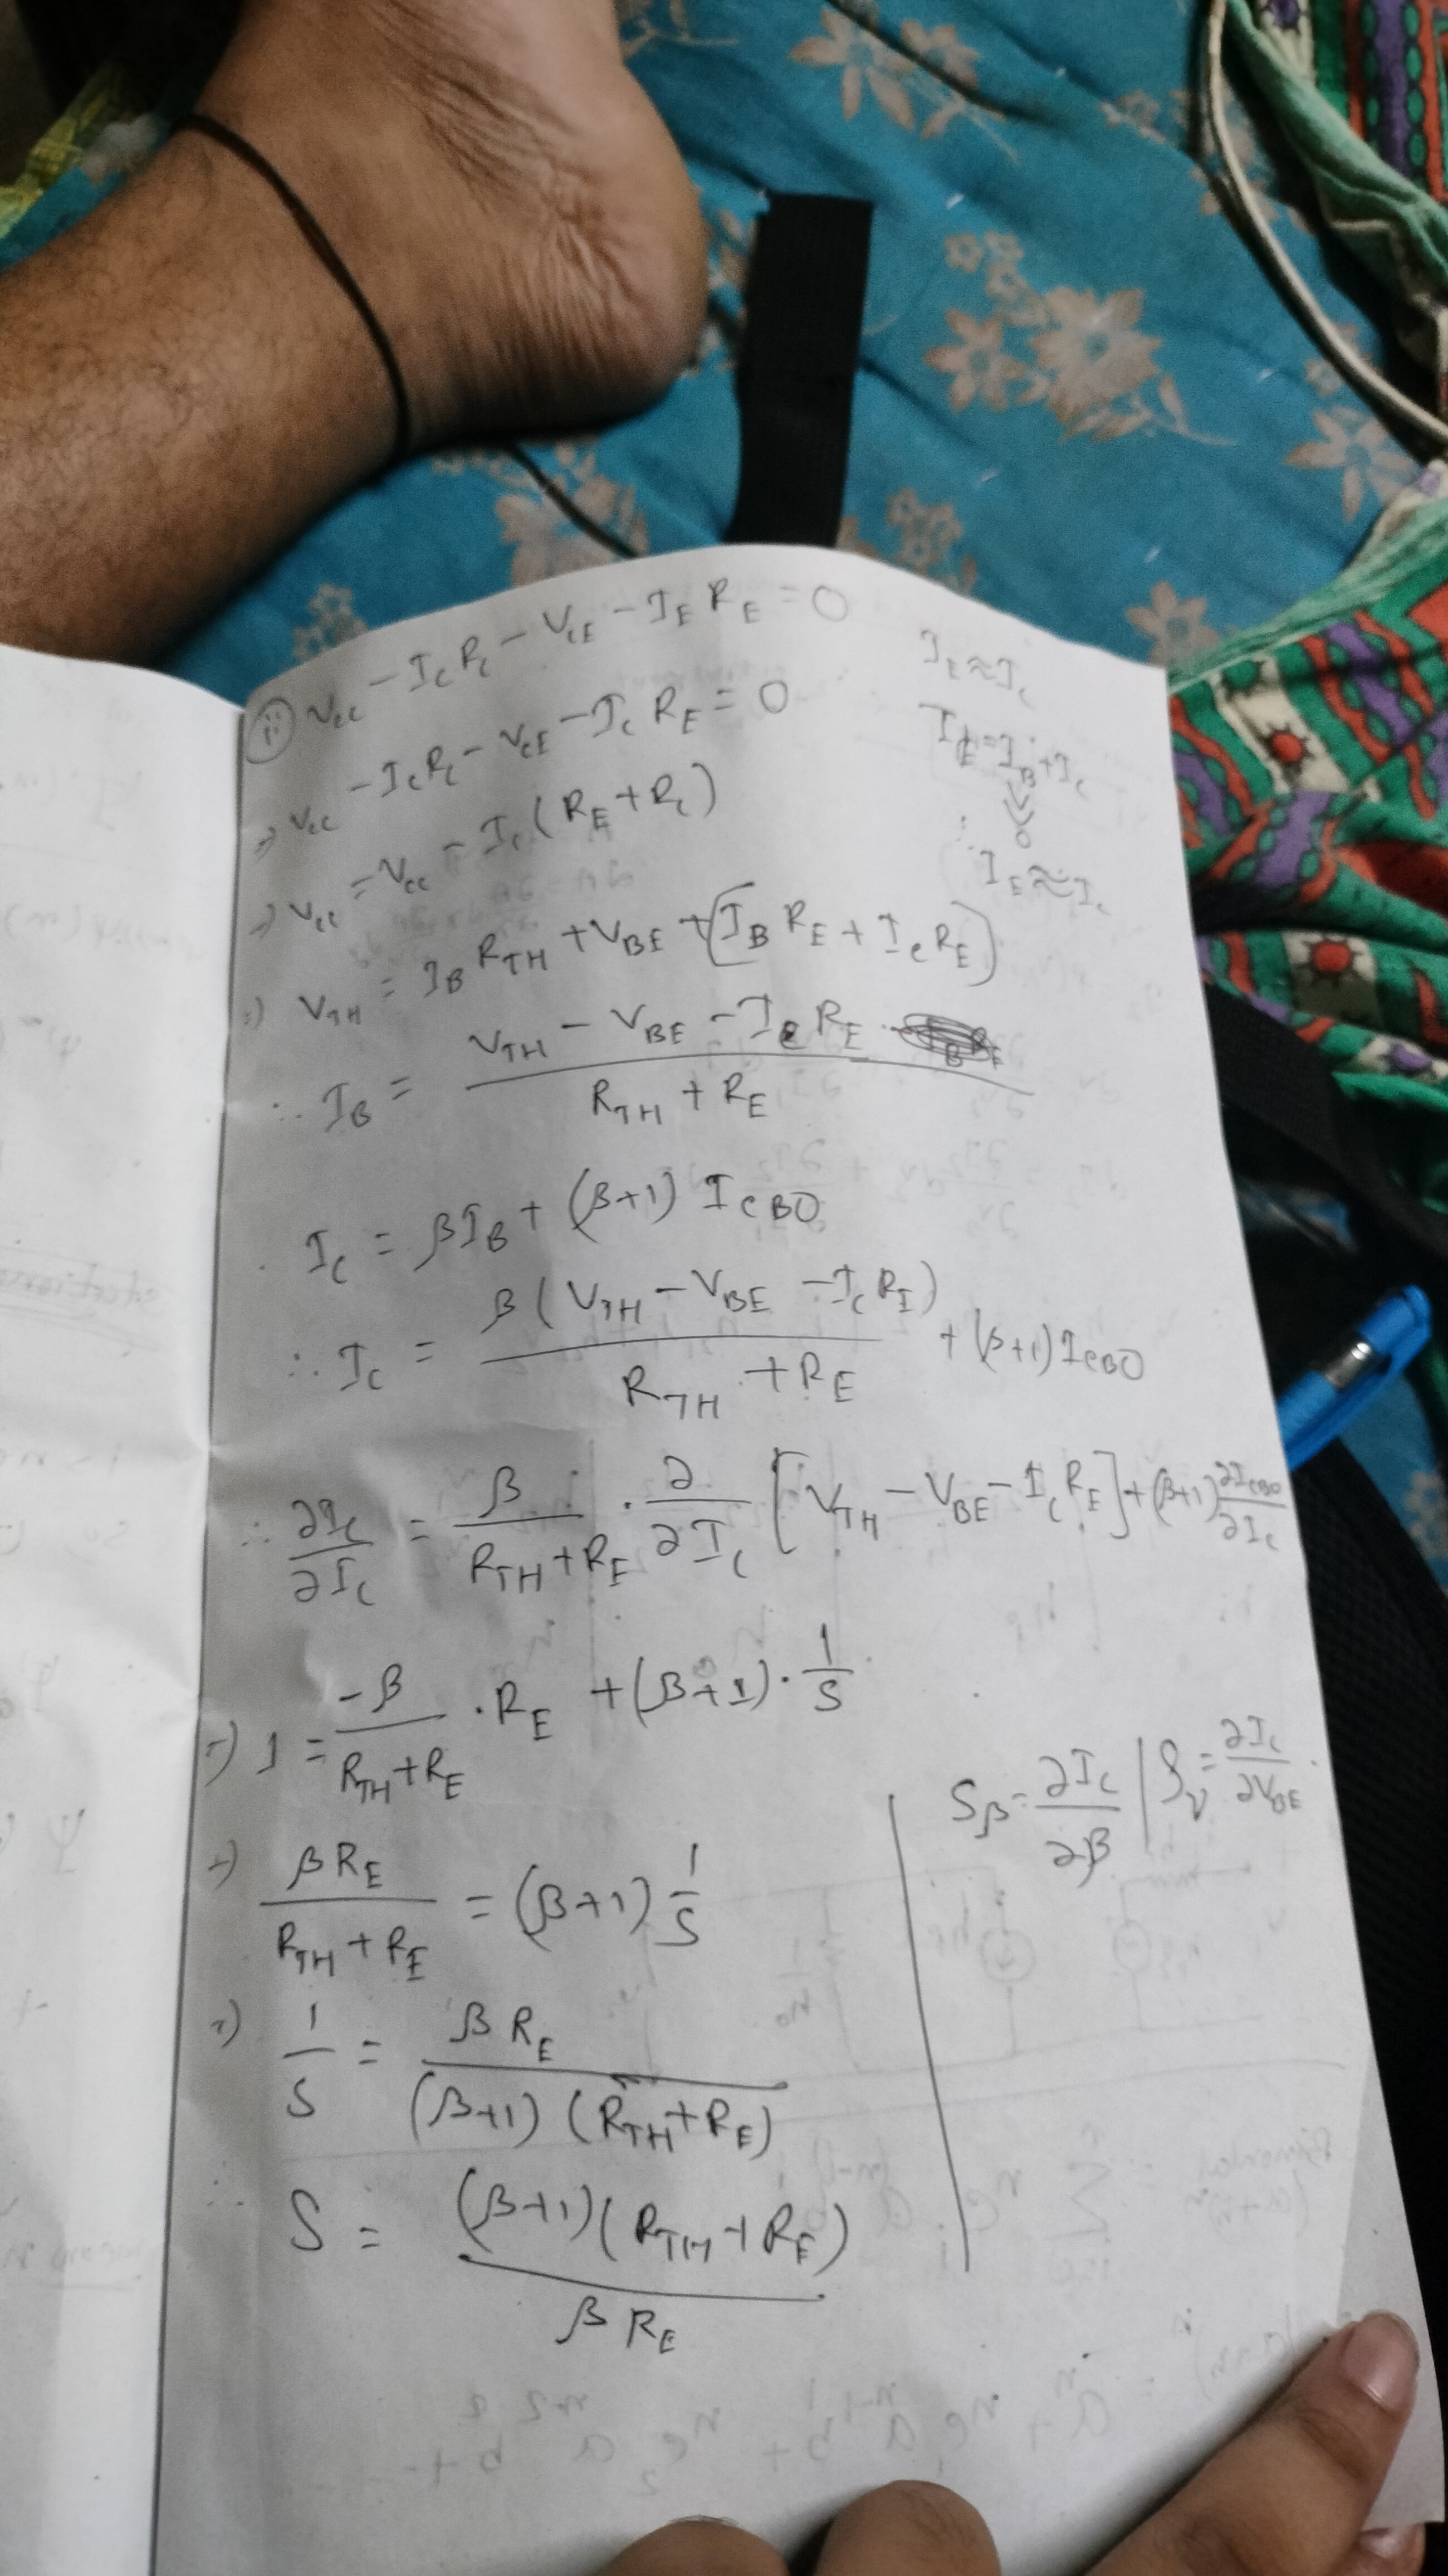 (ii) Vcc - IcRc - VCE - IE RE = 0
⇒ Vcc - IcRc - VCE - Ic RE = 0
⇒ Vcc = Vcc - Ic(RE+Rc)
IE≈Ic
IE=IB+Ic
0
∴ IE≈Ic
⇒ VTH = IB RTH + VBE + [IB RE + Ic RE]
∴ IB = (VTH - VBE - Ic RE) / (RTH + RE)
Ic = βIB + (β+1) ICBO
∴ Ic = β(VTH - VBE - Ic RE) / (RTH + RE) + (β+1)ICBO
∴ ∂Ic/∂Ic = β/(RTH+RE) · ∂/∂Ic [VTH - VBE - Ic RE] + (β+1) ∂ICBO/∂Ic
⇒ 1 = -β/(RTH+RE) · RE + (β+1) · 1/S
⇒ βRE/(RTH+RE) = (β+1) 1/S
⇒ 1/S = βRE / (β+1)(RTH+RE)
∴ S = (β+1)(RTH+RE) / βRE
Sβ = ∂Ic/∂β | Sv = ∂Ic/∂VBE